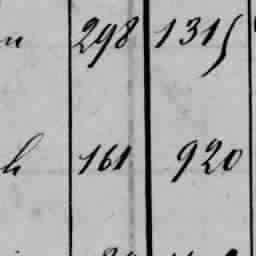 298 1315
161 920